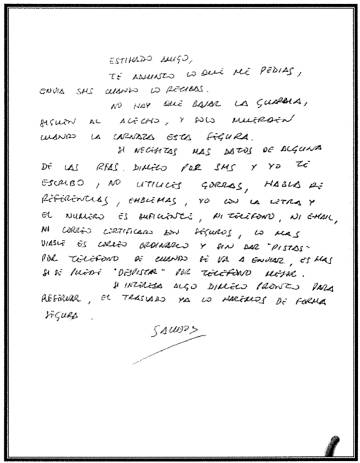 ESTIMADO AMIGO,
TE ADJUNTO LO QUE ME PEDIAS,
ENVIA SMS CUANDO LO RECIBAS.
NO HAY QUE BAJAR LA GUARDIA,
SIGUEN AL ACECHO, Y SOLO MUERDEN
CUANDO LA CARNAZA ESTA SEGURA.
SI NECESITAS MAS DATOS DE ALGUNA
DE LAS RFAS. DIMELO POR SMS Y YO TE
ESCRIBO, NO UTILICES GORRAS, HABLA DE
REFERENCIAS, EMBLEMAS, YO CON LA LETRA Y
EL NUMERO ES SUFICIENTE, NI TELEFONO, NI EMAIL,
NI CORREO CERTIFICADO SON SEGUROS, LO MAS
VIABLE ES CORREO ORDINARIO Y SIN DAR "PISTAS"
POR TELEFONO DE CUANDO SE VA A ENVIAR, ES MAS
SI SE PUEDE "DESPISTAR" POR TELEFONO MEJOR.
SI INTERESA ALGO DIMELO PRONTO PARA
RESERVAR, EL TRASLADO YA LO HAREMOS DE FORMA
SEGURA.
SALUDOS